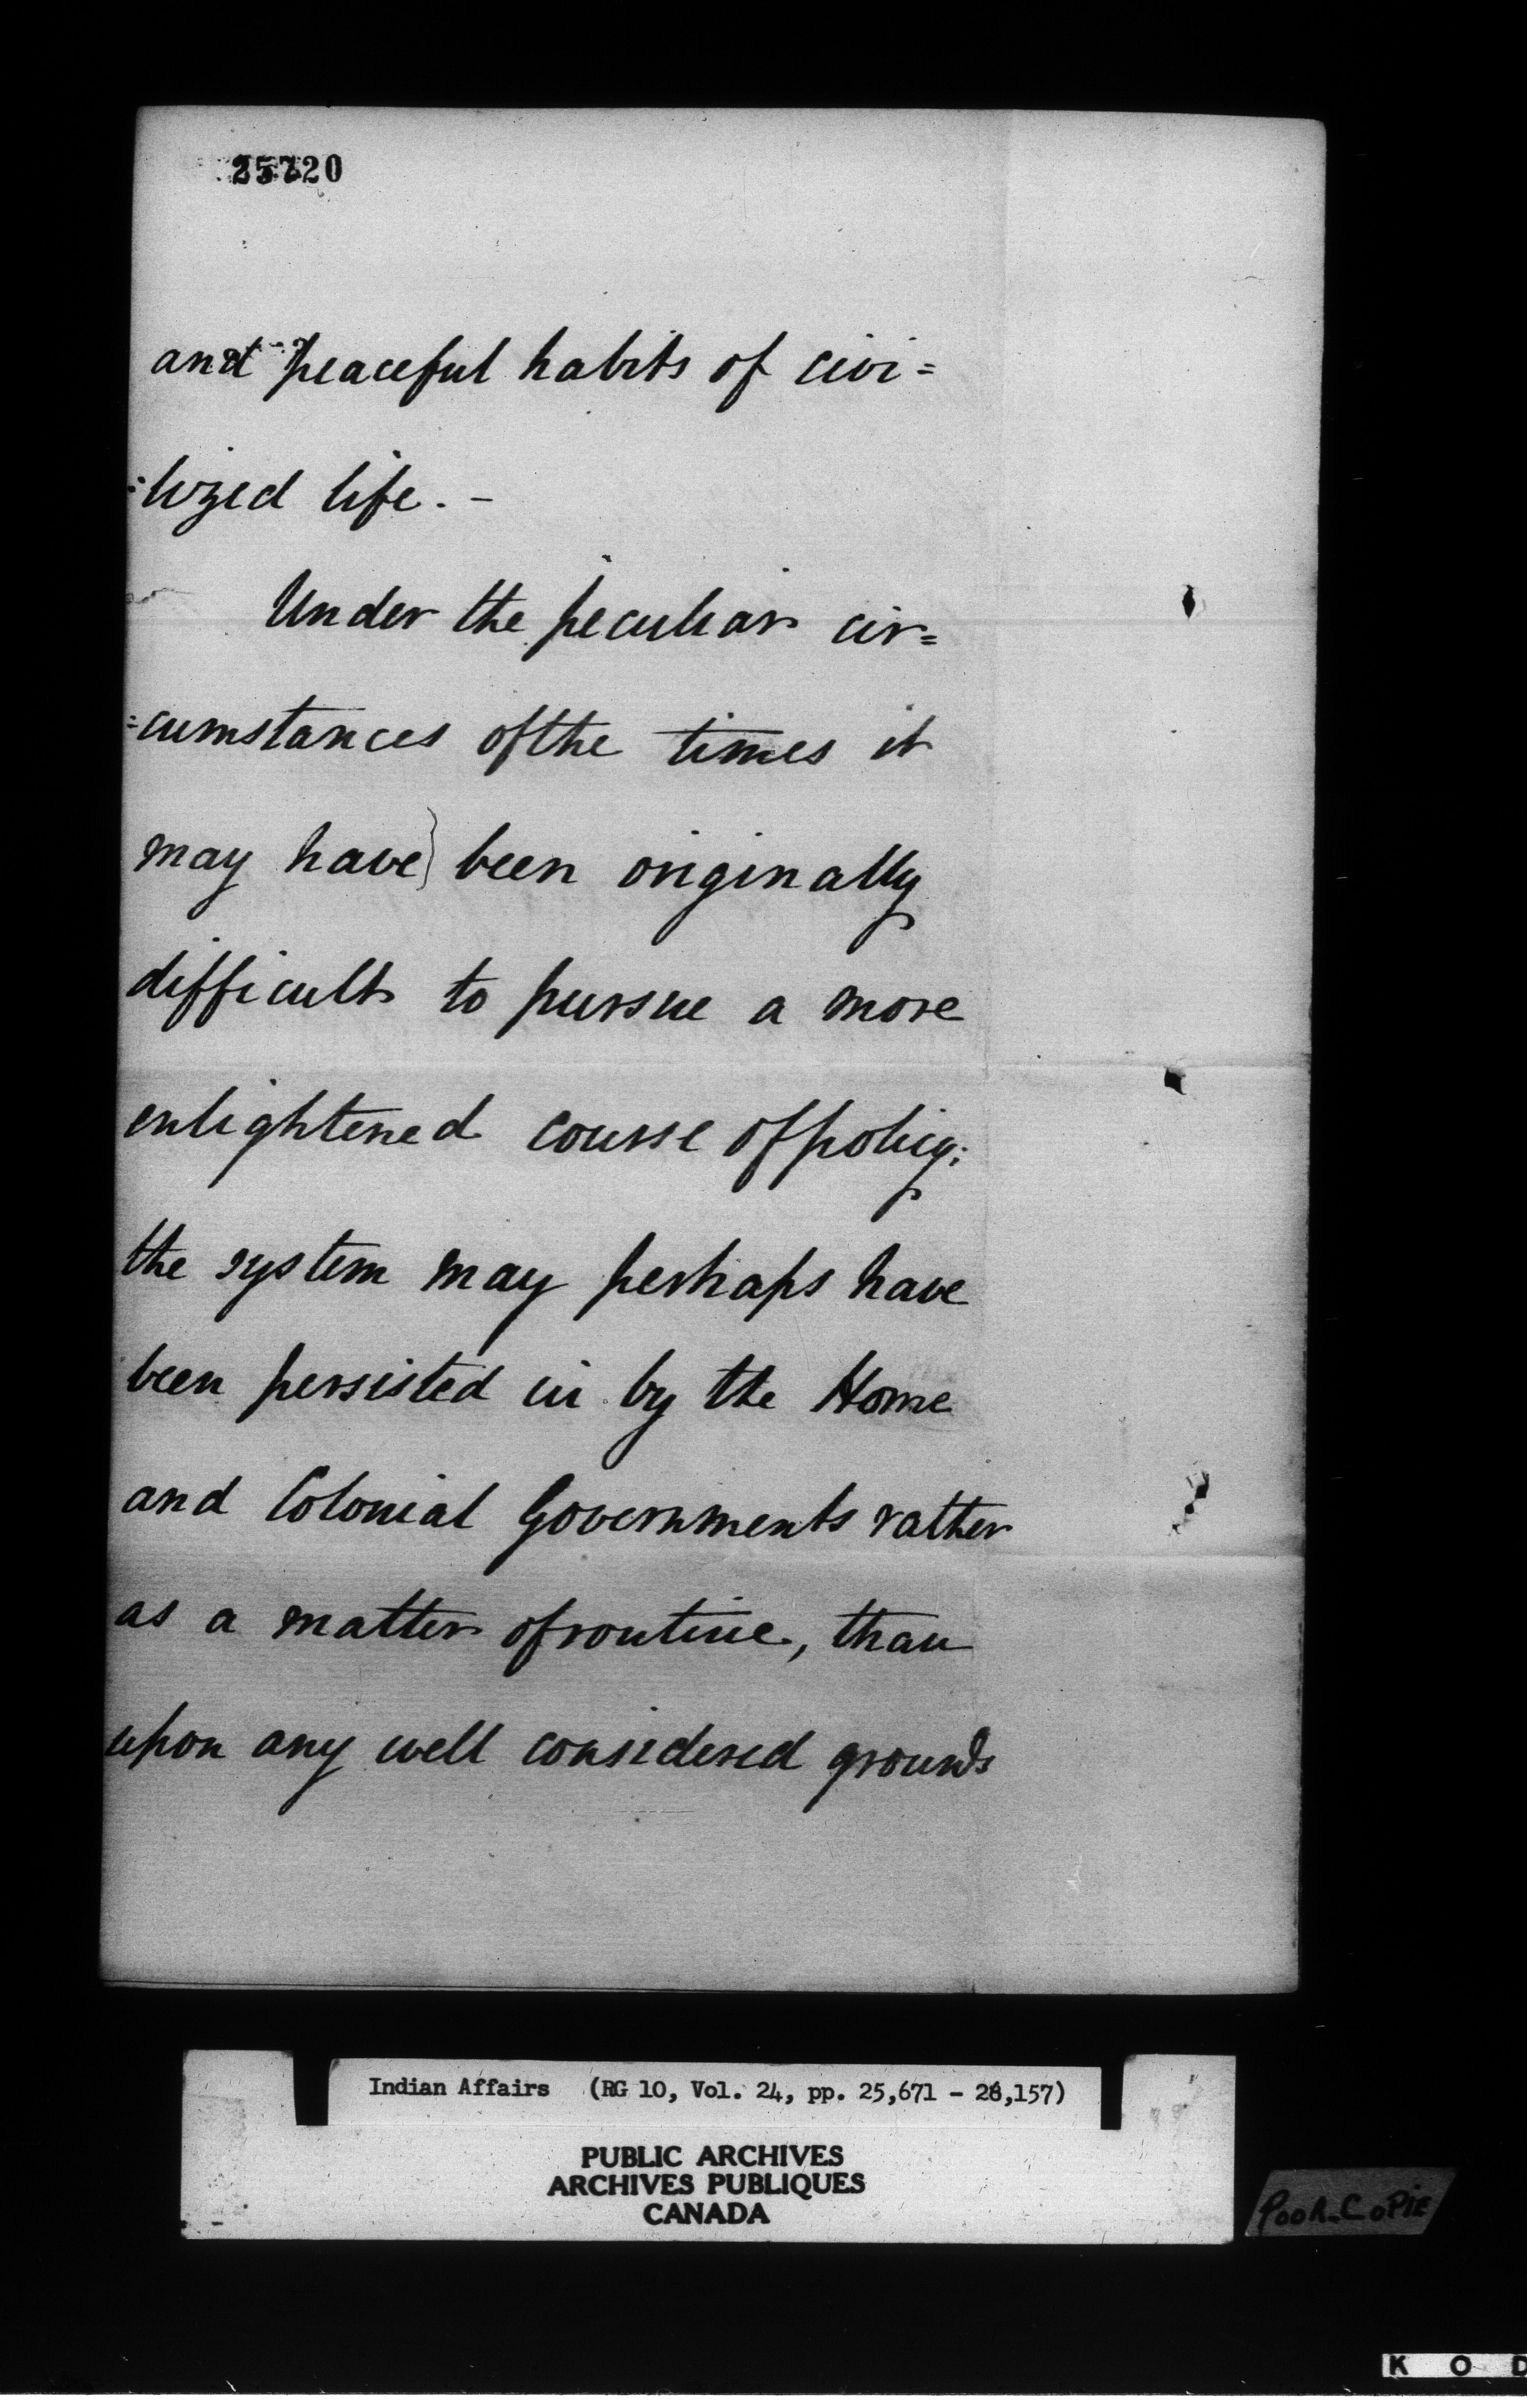 25720
and peaceful habits of civi=
=lized life. -
Under the peculiar cir=
=cumstances of the times it
may have been originally
difficult to pursue a more
enlightened course of policy;
the system may perhaps have
been persisted in by the Home
and Colonial Governments rather
as a matter of routine, than
upon any well considered grounds
Indian Affairs (RG 10, Vol. 24, pp. 25,671 - 26,157)
PUBLIC ARCHIVES
ARCHIVES PUBLIQUES
CANADA
POOR COPIE
K O D